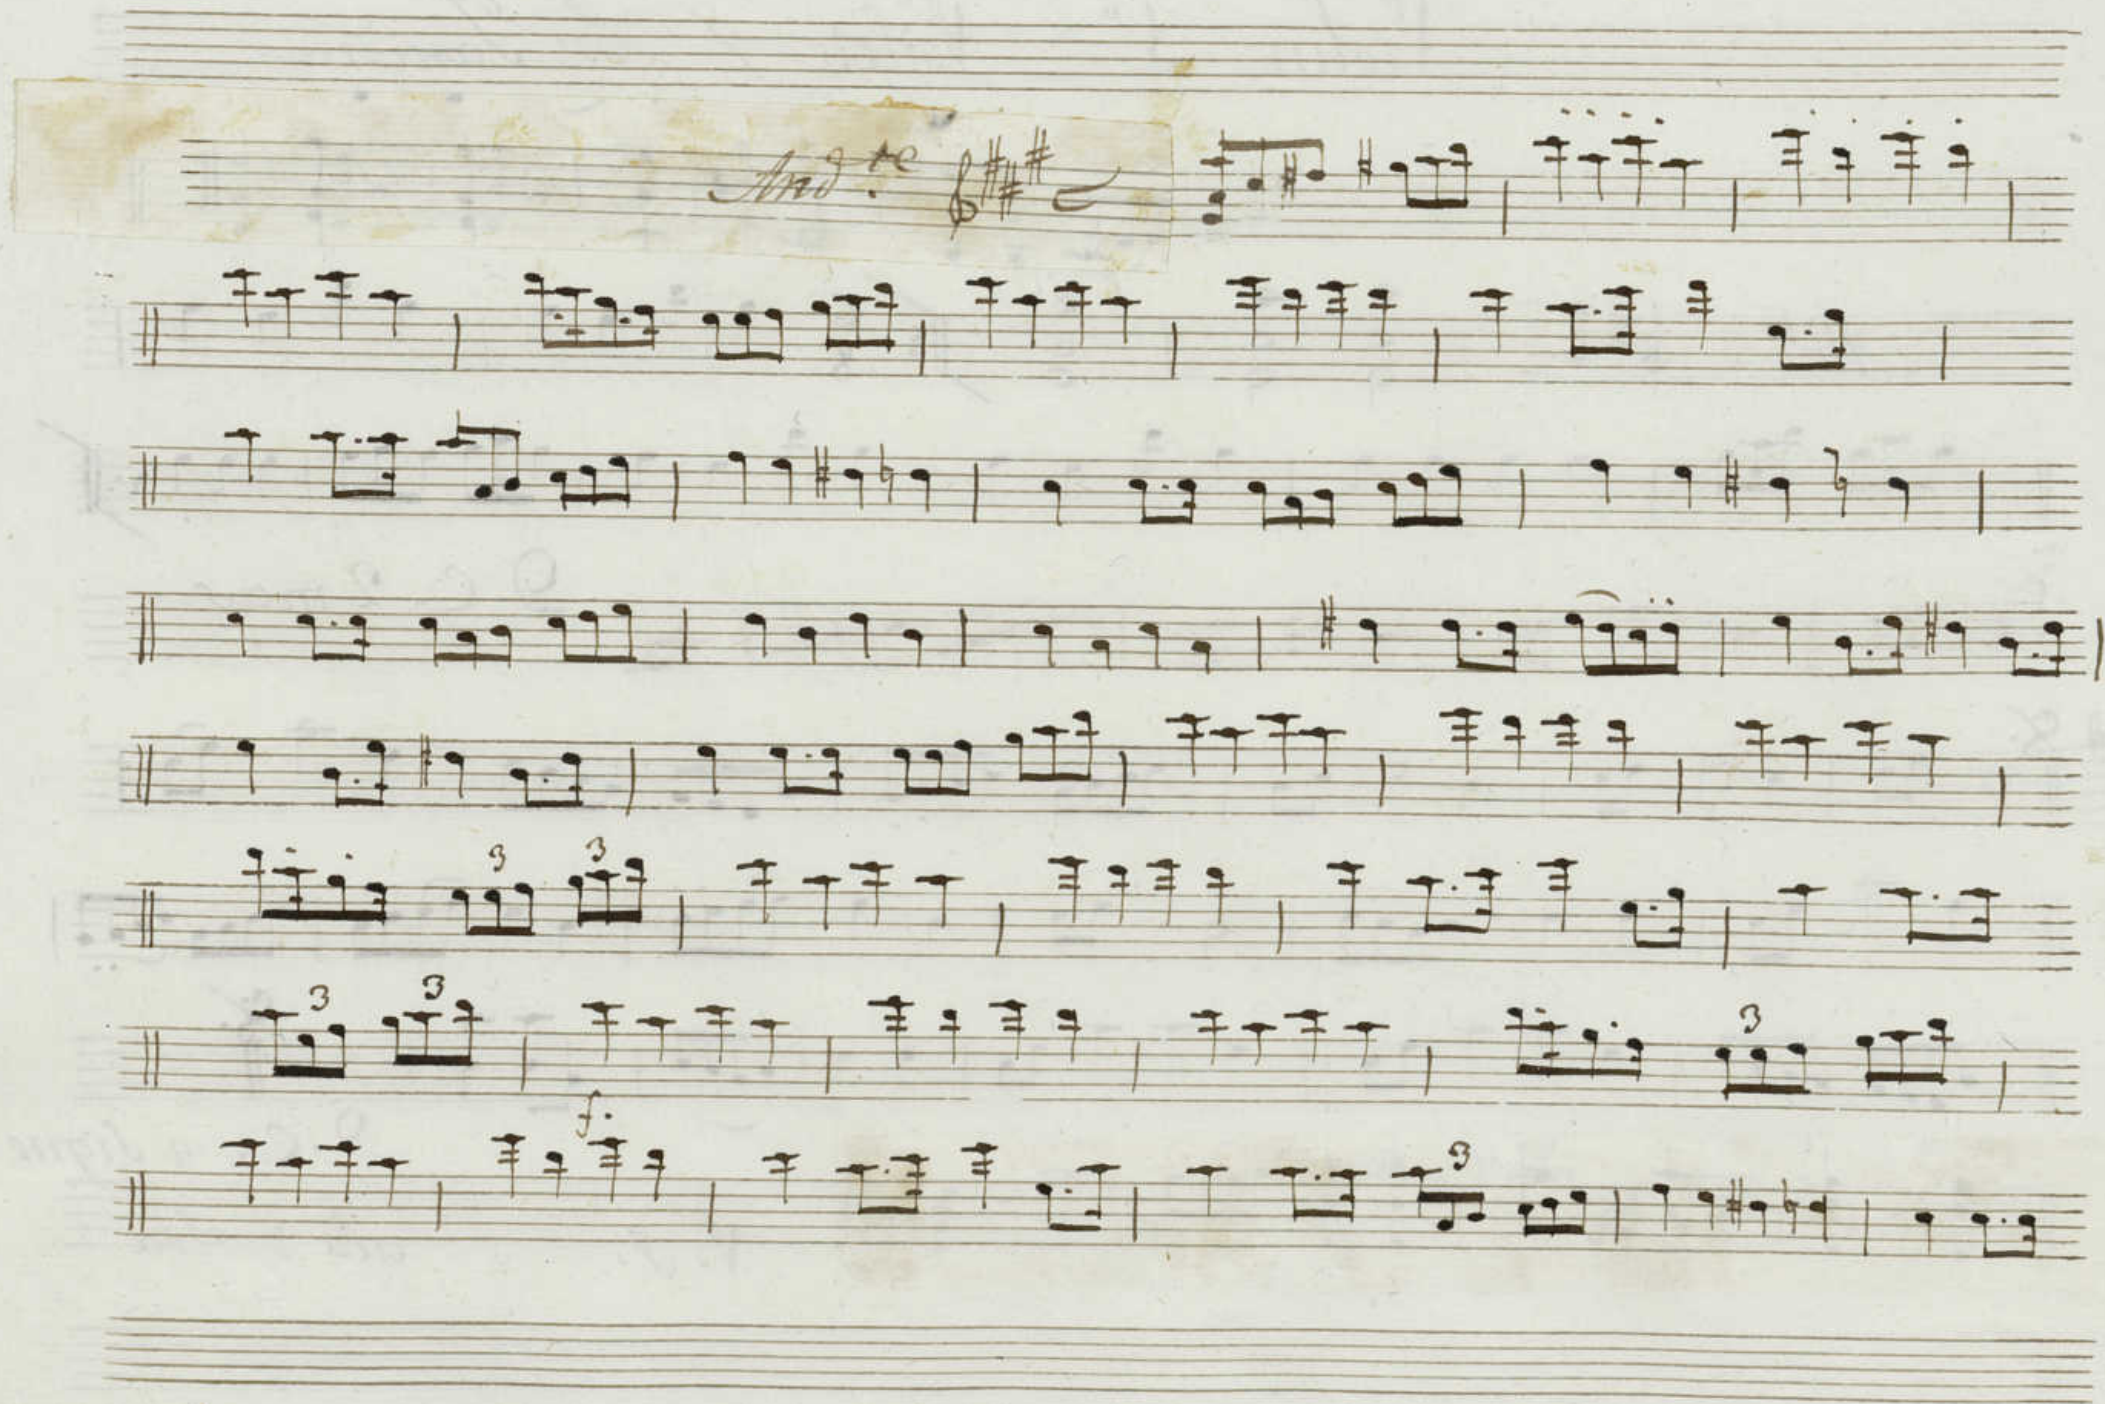 And.te
3 3
3 3 3
f.
3